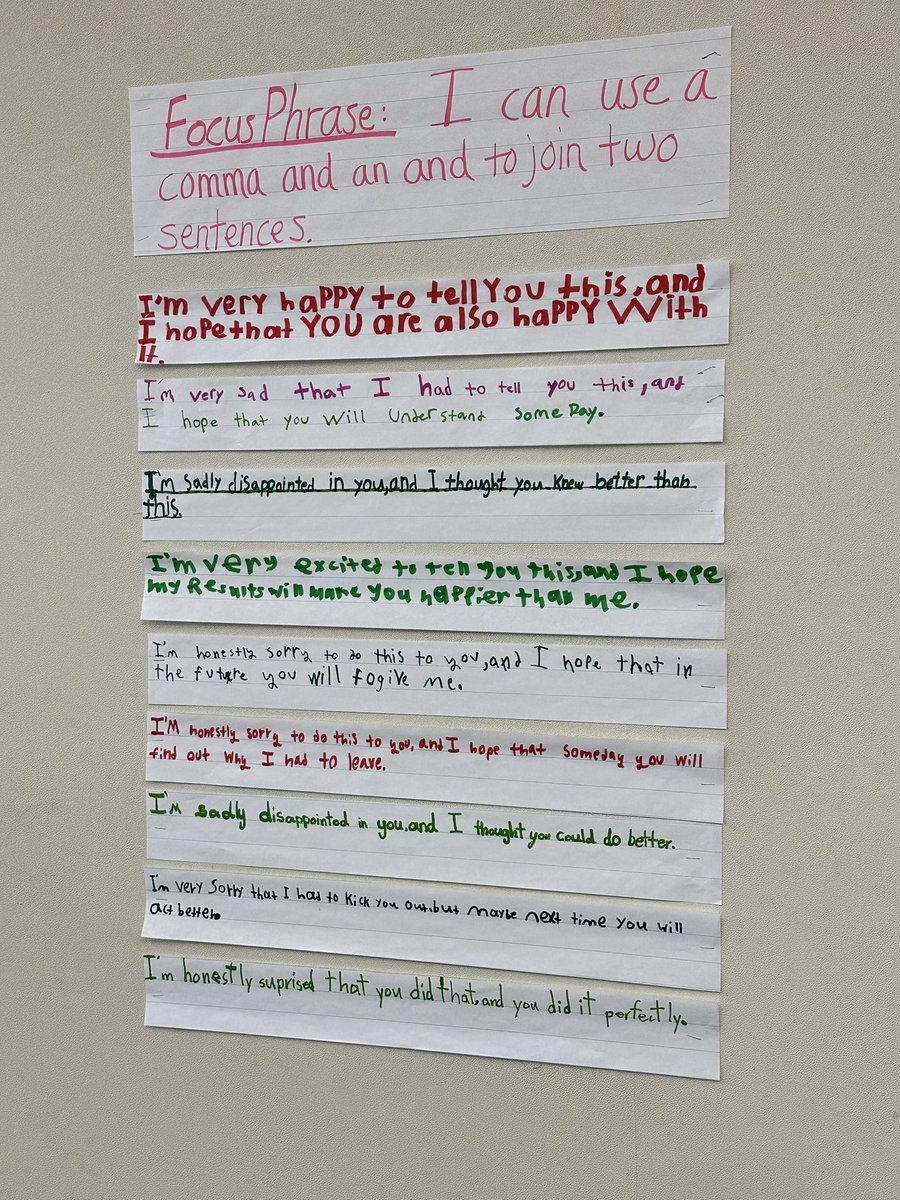 Focus Phrase: I can use a
comma and an and to join two
sentences.
I'm very haPPY to tell You this, and
I hope that YOU are also haPPY With
It.
I'm very sad that I had to tell you this, and
I hope that you will Understand SomeDay.
I'm sadly disappointed in you, and I thought you knew better than
this.
I'm very excited to tell you this, and I hope
my Results will make you happier than me.
I'm honestly sorry to do this to you, and I hope that in
the future you will fogive me.
I'M honestly sorry to do this to you, and I hope that someday you will
find out why I had to leave.
I'm sadly disappointed in you, and I thought you could do better.
I'm very Sorry that I had to Kick you out, but maybe next time you will
act better.
I'm honestly suprised that you did that, and you did it perfectly.